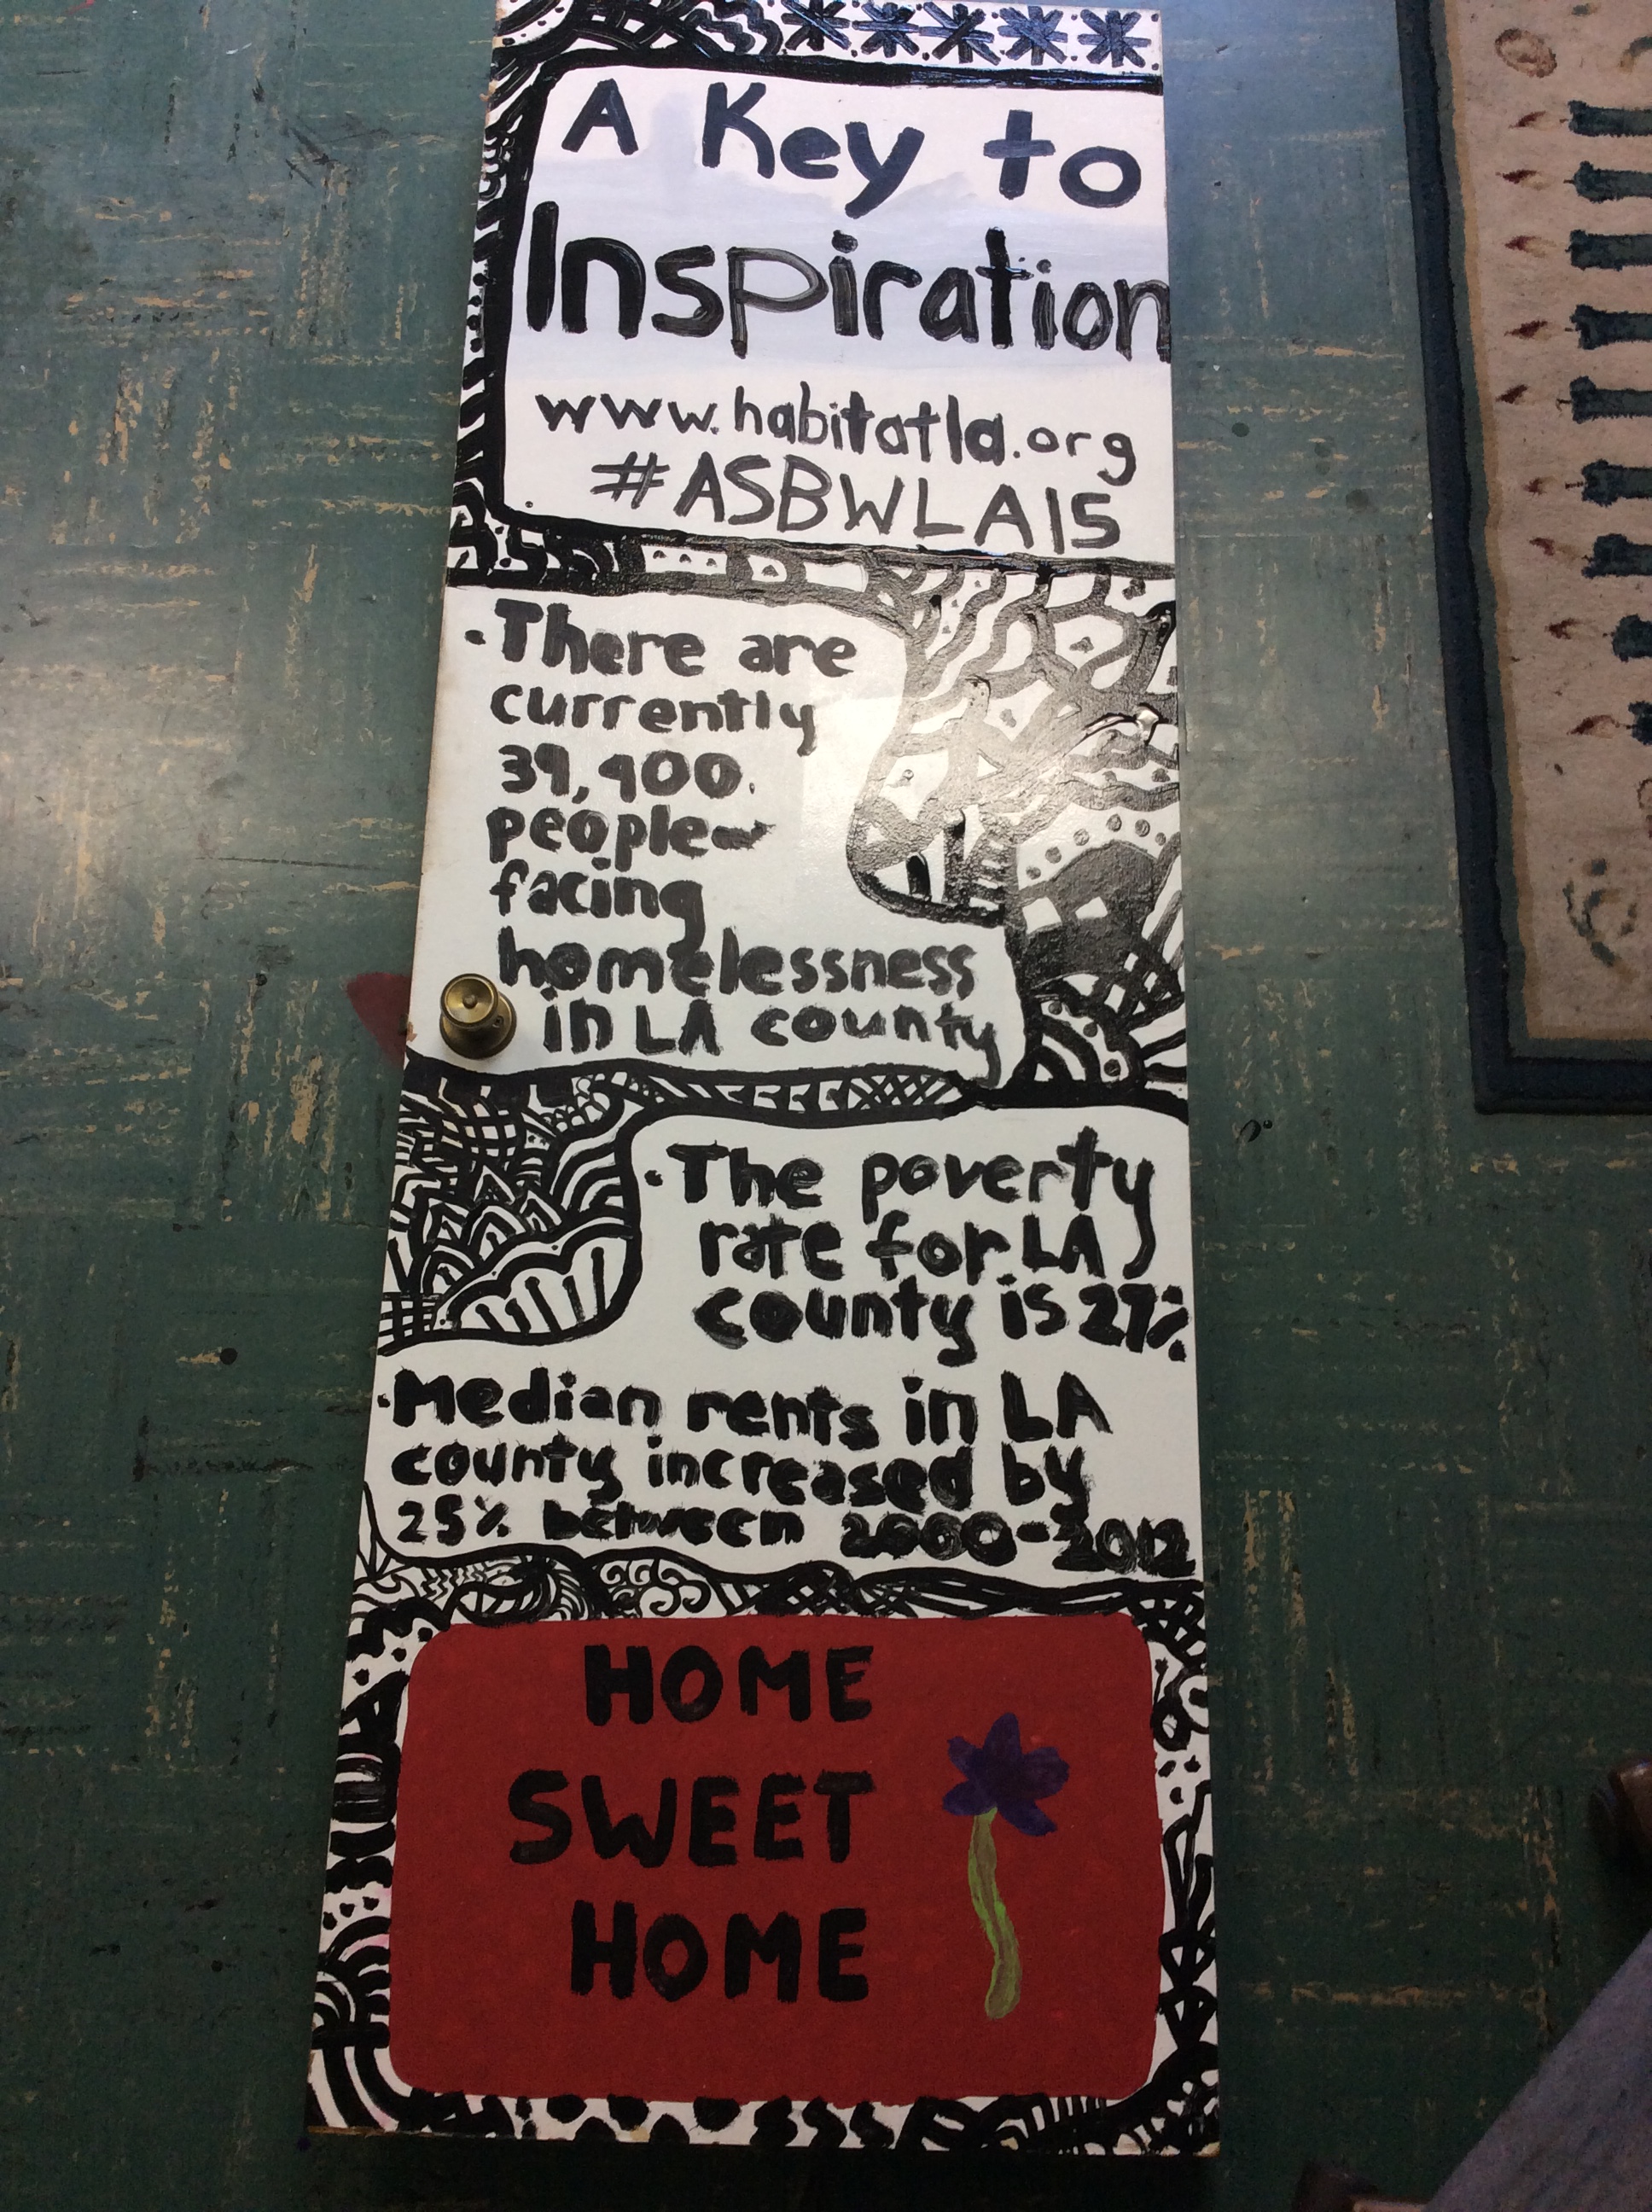 A Key to
Inspiration
www.habitatla.org
#ASBWLA15
• There are
currently
39,400
people
facing
homelessness
in LA county
• The poverty
rate for LA
county is 27%
• Median rents in LA
county increased by
25% between 2000-2012
HOME
SWEET
HOME